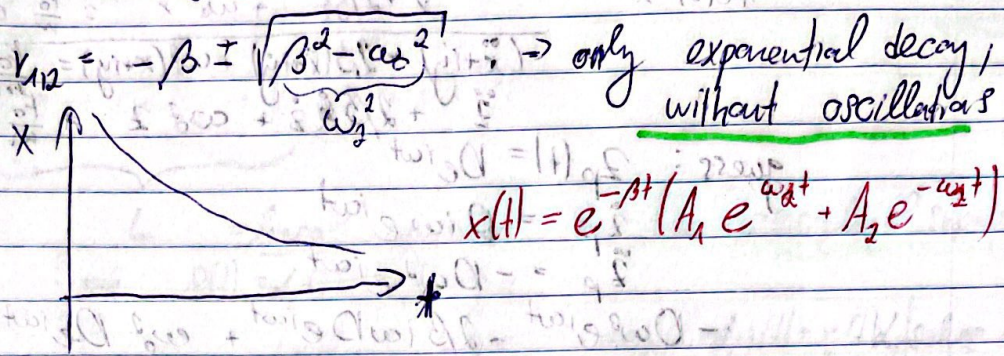 r₁,₂ = -β ± √(β² - ω₀²) : → only exponential decay,
ω₂²
without oscillations
x
x(t) = e^(-βt) (A₁ e^(ω₂t) + A₂ e^(-ω₂t))
t